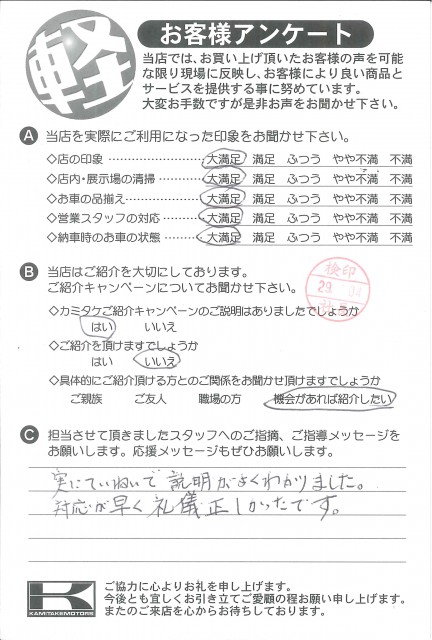 軽
お客様アンケート
当店では、お買い上げ頂いたお客様の声を可能
な限り現場に反映し、お客様により良い商品と
サービスを提供する事に努めています。
大変お手数ですが是非お声をお聞かせ下さい。
A 当店を実際にご利用になった印象をお聞かせ下さい。
◇店の印象 ………………… 大満足 満足 ふつう やや不満 不満
◇店内・展示場の清掃……… 大満足 満足 ふつう やや不満 不満
◇お車の品揃え……………… 大満足 満足 ふつう やや不満 不満
◇営業スタッフの対応 ……… 大満足 満足 ふつう やや不満 不満
◇納車時のお車の状態 ……… 大満足 満足 ふつう やや不満 不満
B 当店はご紹介を大切にしております。
ご紹介キャンペーンについてお聞かせ下さい。
検印
29
04
◇カミタケご紹介キャンペーンのご説明はありましたでしょうか
はい いいえ
◇ご紹介を頂けますでしょうか
はい いいえ
◇具体的にご紹介頂ける方とのご関係をお聞かせ頂けますでしょうか
ご親族 ご友人 職場の方 機会があれば紹介したい
C 担当させて頂きましたスタッフへのご指摘、ご指導メッセージを
お願いします。応援メッセージもぜひお願いします。
実にていねいで説明がよくわかりました。
対応が早く礼儀正しかったです。
K
KAMITAKEMOTORS
ご協力に心よりお礼を申し上げます。
今後とも宜しくお引き立てご愛顧の程お願い申し上げます。
またのご来店を心からお待ちしております。